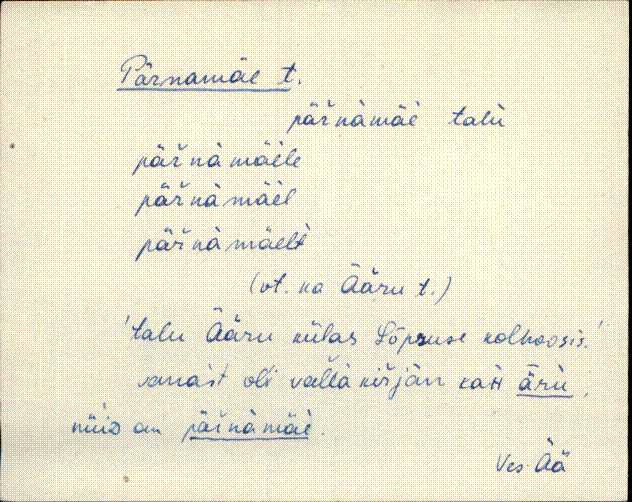 Pärnamäe t.
pär̆nàmäè talù
pär̆nàmäèle
pär̆nàmäèl
pär̆nàmäèlt
(vt. ka Ääru t.)
'talu Ääru külas Sõpruse kolhoosis.'
vanàst oli vallà kirjàn kàtì ärù,
nüid on pär̆nàmäè.
Ves Ää